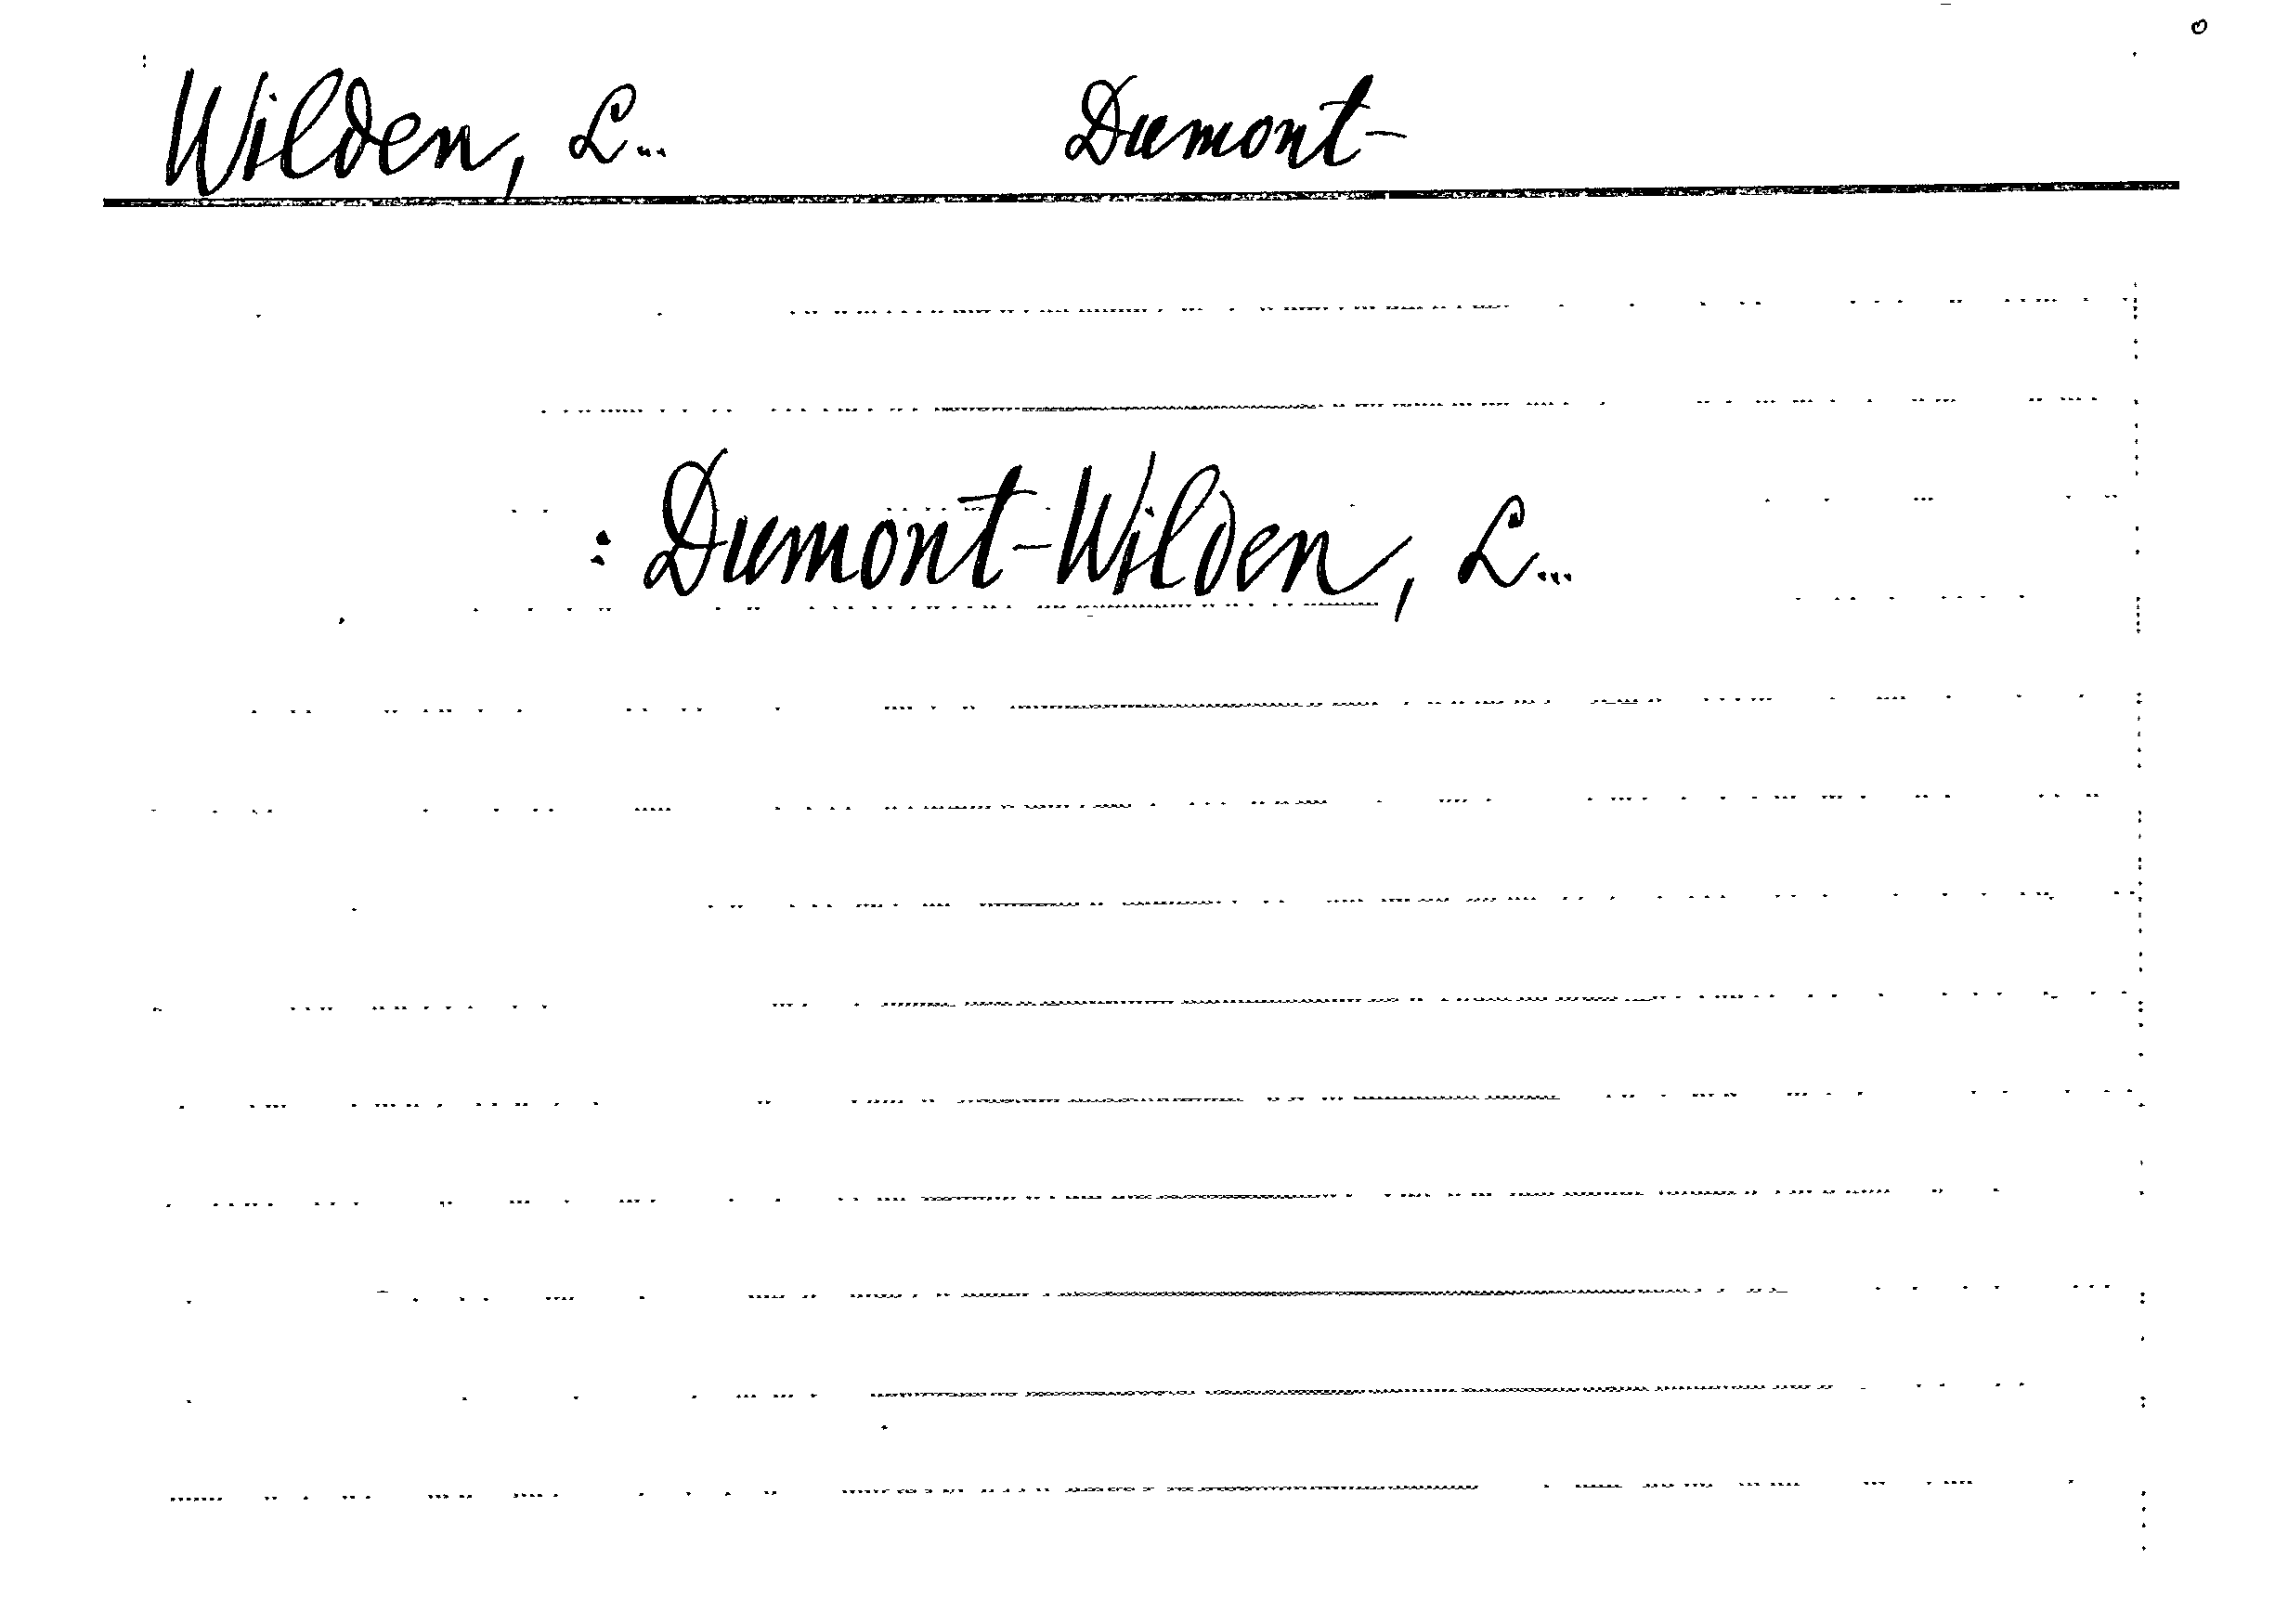 Wilden, L... Dumont-
: Dumont-Wilden, L...